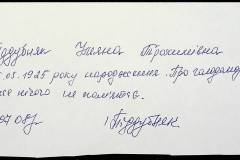 Піддубняк Уляна Трохимівна
.05.1925 року народження. Про голодомор
же нічого не пам'ятає.
07.08 р Піддубняк